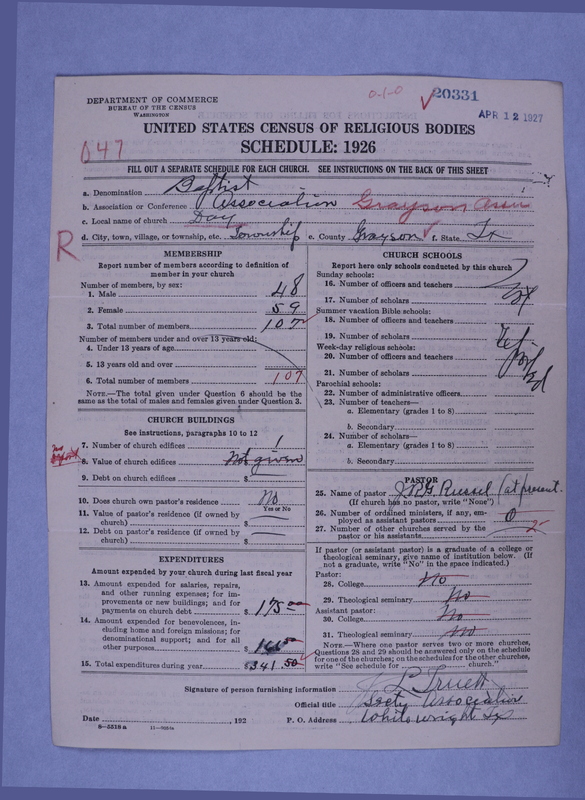 DEPARTMENT OF COMMERCE
BUREAU OF THE CENSUS
WASHINGTON
0-1-0
20331
APR 12 1927
UNITED STATES CENSUS OF RELIGIOUS BODIES
SCHEDULE: 1926
FILL OUT A SEPARATE SCHEDULE FOR EACH CHURCH. SEE INSTRUCTIONS ON THE BACK OF THIS SHEET
a. Denomination Baptist
b. Association or Conference Association Grayson Assn
c. Local name of church Day
R
d. City, town, village, or township, etc. Township e. County Grayson f. State Tx
MEMBERSHIP
Report number of members according to definition of
member in your church
Number of members, by sex:
1. Male 48
2. Female 59
3. Total number of members 107
Number of members under and over 13 years old:
4. Under 13 years of age
5. 13 years old and over
6. Total number of members 107
NOTE.—The total given under Question 6 should be the
same as the total of males and females given under Question 3.
CHURCH BUILDINGS
See instructions, paragraphs 10 to 12
7. Number of church edifices 1
8. Value of church edifices Not given
9. Debt on church edifices $
10. Does church own pastor's residence No
Yes or No
11. Value of pastor's residence (if owned by
church) $
12. Debt on pastor's residence (if owned by
church) $
EXPENDITURES
Amount expended by your church during last fiscal year
13. Amount expended for salaries, repairs,
and other running expenses; for im-
provements or new buildings; and for
payments on church debt $ 175.00
14. Amount expended for benevolences, in-
cluding home and foreign missions; for
denominational support; and for all
other purposes $
15. Total expenditures during year $ 341.50
CHURCH SCHOOLS
Report here only schools conducted by this church
Sunday schools:
16. Number of officers and teachers
17. Number of scholars
Summer vacation Bible schools:
18. Number of officers and teachers
19. Number of scholars
Week-day religious schools:
20. Number of officers and teachers
21. Number of scholars
Parochial schools:
22. Number of administrative officers
23. Number of teachers—
a. Elementary (grades 1 to 8)
b. Secondary
24. Number of scholars—
a. Elementary (grades 1 to 8)
b. Secondary
PASTOR
25. Name of pastor Russel (at present
(If church has no pastor, write "None")
26. Number of ordained ministers, if any, em-
ployed as assistant pastors 0
27. Number of other churches served by the
pastor or his assistants 2
If pastor (or assistant pastor) is a graduate of a college or
theological seminary, give name of institution below. (If
not a graduate, write "No" in the space indicated.)
Pastor:
28. College No
29. Theological seminary No
Assistant pastor:
30. College No
31. Theological seminary No
NOTE.—Where one pastor serves two or more churches,
Questions 28 and 29 should be answered only on the schedule
for one of the churches; on the schedules for the other churches,
write "See schedule for church."
Signature of person furnishing information Truett
Official title Secty Association
Date , 192 P. O. Address Whitewright Tx
8-5518a